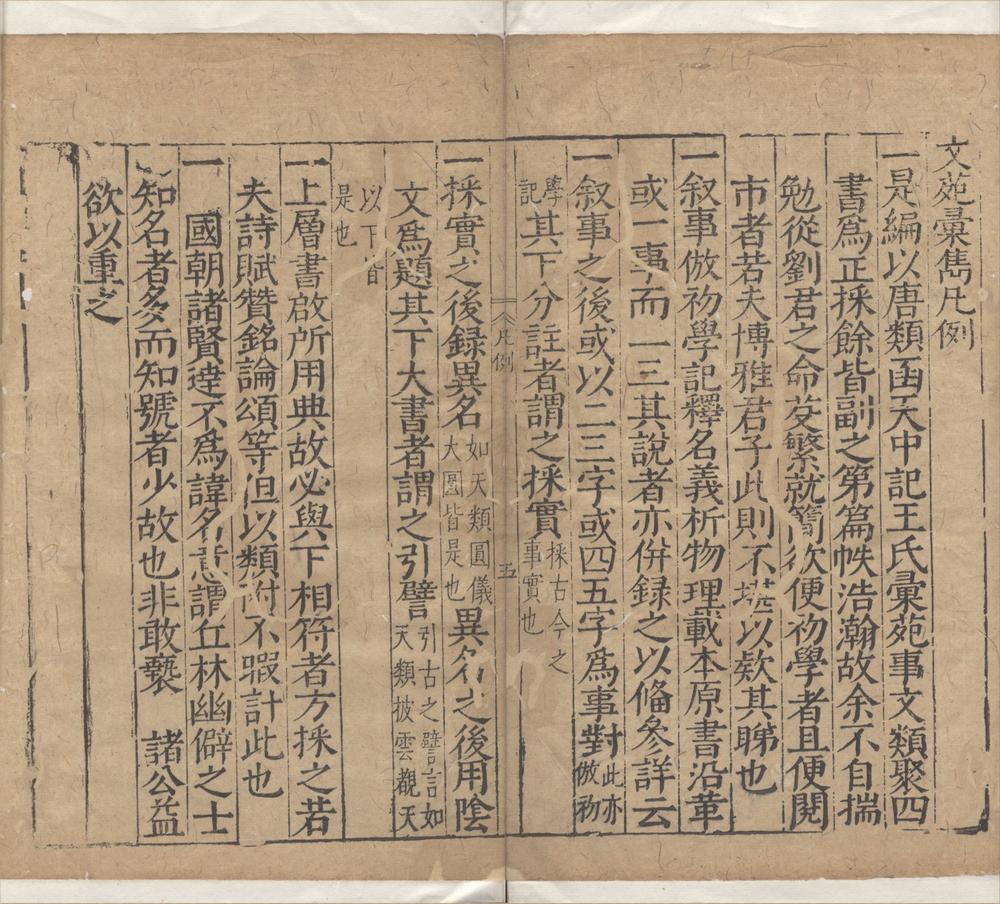 文苑彙雋凡例
一是編以唐類函天中記王氏彙苑事文類聚四
書爲正採餘皆副之第篇帙浩瀚故余不自揣
勉從劉君之命芟繁就簡欲便初學者且便閱
市者若夫博雅君子此則不堪以欵其睇也
一叙事倣初學記釋名義析物理載本原書沿革
或一事而一三其說者亦倂録之以俻參詳云
一叙事之後或以二三字或四五字爲事對此亦倣初
學記其下分註者謂之採實採古今之事實也
凡例
五
一採實之後録異名如天類圓儀大圜皆是也異名之後用陰
文爲題其下大書者謂之引譬引古之譬言如天類披雲覩天
以下皆是也
一上層書啟所用典故必與下相符者方採之若
夫詩賦贊銘論頌等但以類附不暇計此也
一國朝諸賢逹不爲諱名意謂丘林幽僻之士
知名者多而知號者少故也非敢褻 諸公益
欲以重之